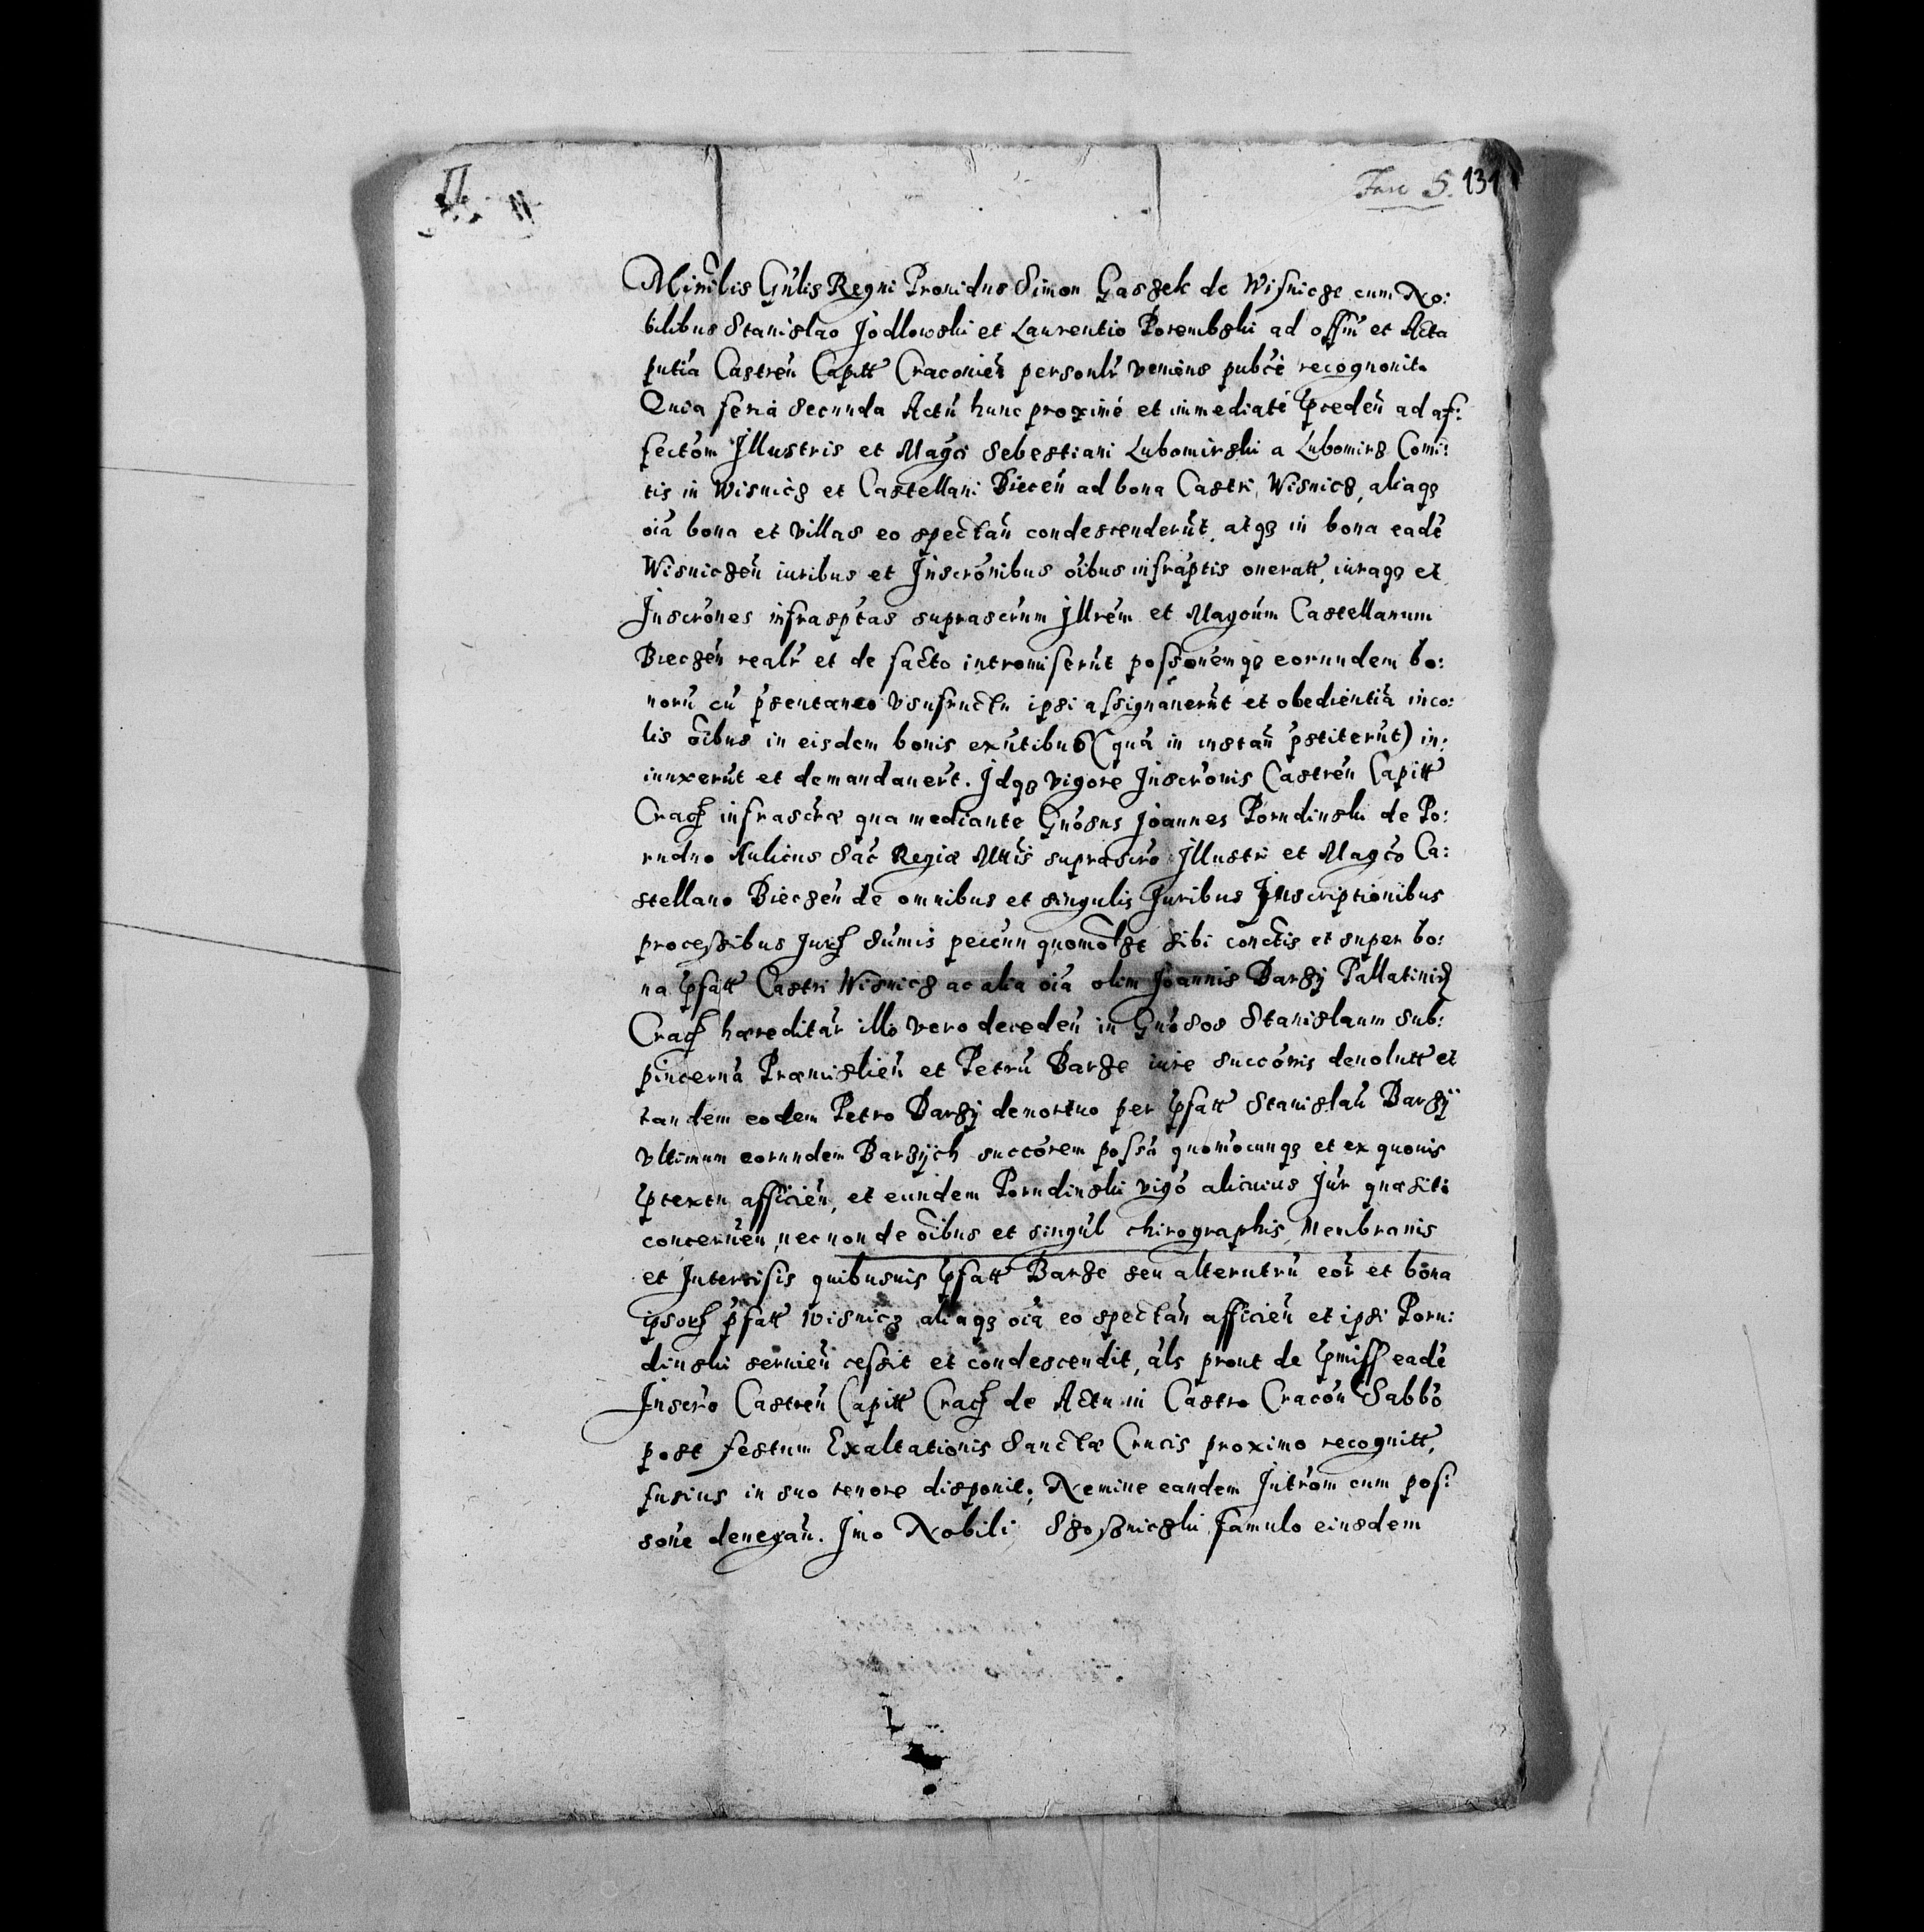 II
Fasc 5. 131
Minrlis Gnlis Regni Prouidus Simon Gaszek de Wisnicze cum No:
bilibus Stanislao Jodlowski et Laurentio Porembski ad offm et Acta
pntia Castren Capitt Cracouien personlr veniens pubce recognouit.
Quia feria secunda Actu hunc proxime et immediate pceden ad af:
fectom Jllustris et Magci Sebestiani Lubomirski a Lubomirz Comi:
tis in Wisnicz et Castellani Biecen ad bona Castri, Wisnicz, aliaqz
oia bona et villas eo spectan condescenderut, atqz in bona eade
Wisniczen iuribus et Jnscronibus oibus infraptis oneratt, iuraqz et
Jnscrones infrasptas suprascrum Jllrem et Magcum Castellanum
Bieczen realr et de facto intromiserut possonemqz eorundem bo:
noru cu psentaneo vsufructu ipsi assignauerut et obedientia inco:
lis oibus in eisdem bonis exntibus (qua in instan pstiterut) in:
iunxerut et demandauert. Jdqz vigore Jnscronis Castren Capitt
Crac infrascrae qua mediante Gnosus Joannes Porudinski de Po:
rudno Aulicus Sac Regiae Mttis suprascro Jllustri et Magco Ca:
stellano Bieczen de omnibus et singulis Juribus Jnscriptionibus
processibus Jur sumis pecun quomolzt sibi conctis et super bo:
na pfatt Castri Wisnicz ac alia oia olim Joannis Barzy Pallatini
Crac haereditar illo vero deceden in Gnosos Stanislaum Sub:
pincerna Praemislien et Petru Barze iure succonis deuolutt et
tandem eodem Petro Barzy demortuo per pfatt Stanislau Barzÿ
vltimum eorundem Barzÿch succorem possa quomocunqz et ex quouis
ptextu afficien, et eundem Porudinski vigo alicuius Jur quaesiti
concernen, nec non de oibus et singul chirographis, Menbranis
et Jntercisis quibusuis pfatt Barze seu alterutru eor et bona
ipsor pfatt Wisnicz aliaqz oia eo spectan afficien et ipsi Poru:
dinski seruien cessit et condescendit, als prout de pmiss eade
Jnscro Castren Capitt Crac de Actu in Castro Cracon Sabbo
post festum Exaltationis Sanctae Crucis proximo recognitt,
fusius in suo tenore disponit; Nemine eandem Jntrom cum pos:
sone denegan. Jmo Nobili Szosznicski famulo eiusdem